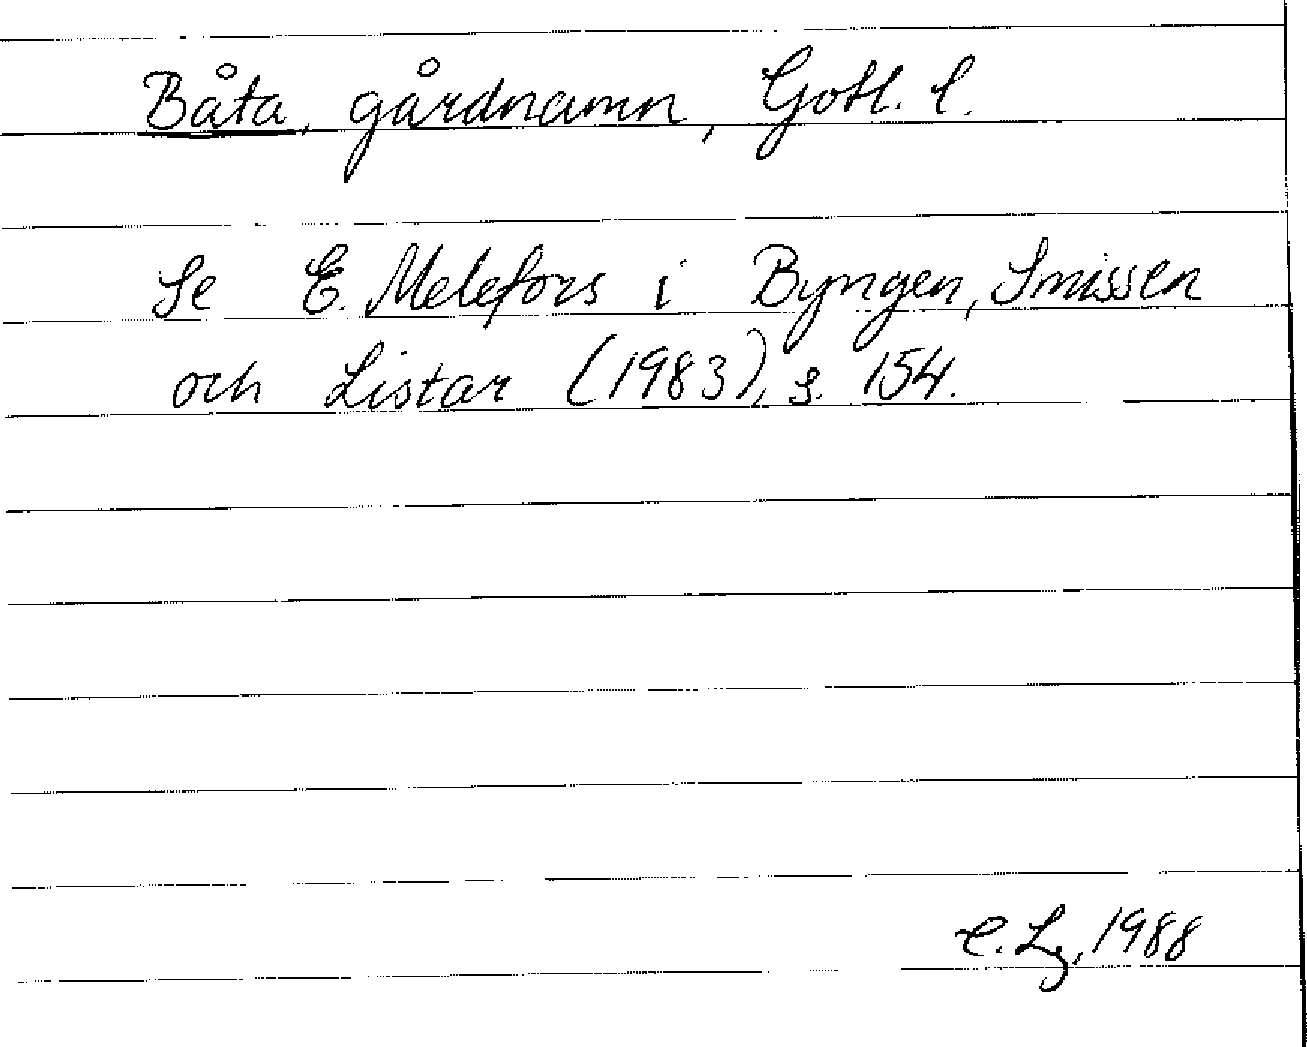 Båta, gårdnamn, Gotl. l.
Se E. Melefors i Byngen, Smissen
och Listar (1983), s. 154.
C. Lg, 1988